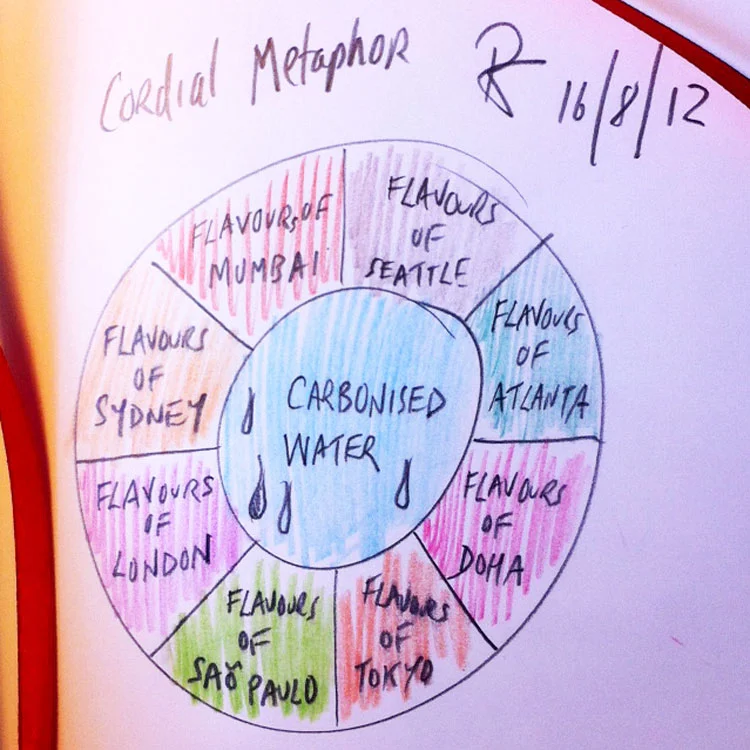 Cordial Metaphor
R 16/8/12
FLAVOURS OF
MUMBAI
FLAVOURS
OF
SEATTLE
FLAVOURS
OF
ATLANTA
FLAVOURS
OF
DOHA
FLAVOURS
OF
TOKYO
FLAVOURS
OF
SAO PAULO
FLAVOURS
OF
LONDON
FLAVOURS
OF
SYDNEY
CARBONISED
WATER